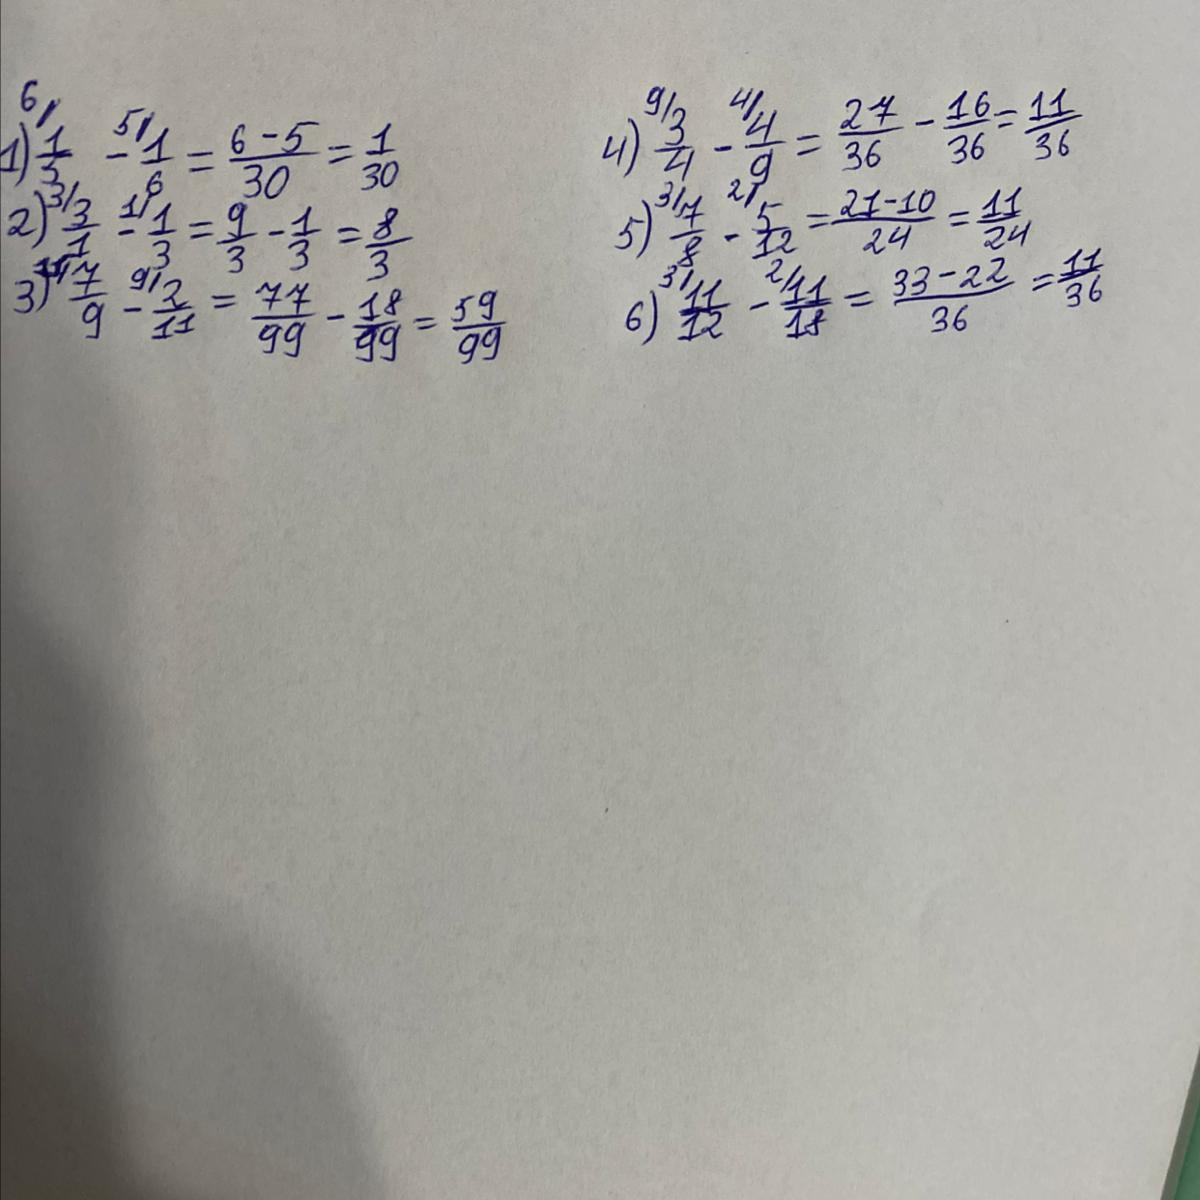 1) 6/ 1/5 - 5/ 1/6 = (6-5)/30 = 1/30
2) 3/ 3/1 - 1/ 1/3 = 9/3 - 1/3 = 8/3
3) 11/ 7/9 - 9/ 2/11 = 77/99 - 18/99 = 59/99
4) 9/ 3/4 - 4/ 4/9 = 27/36 - 16/36 = 11/36
5) 3/ 7/8 - 2/ 5/12 = (21-10)/24 = 11/24
6) 3/ 11/12 - 2/ 11/18 = (33-22)/36 = 11/36